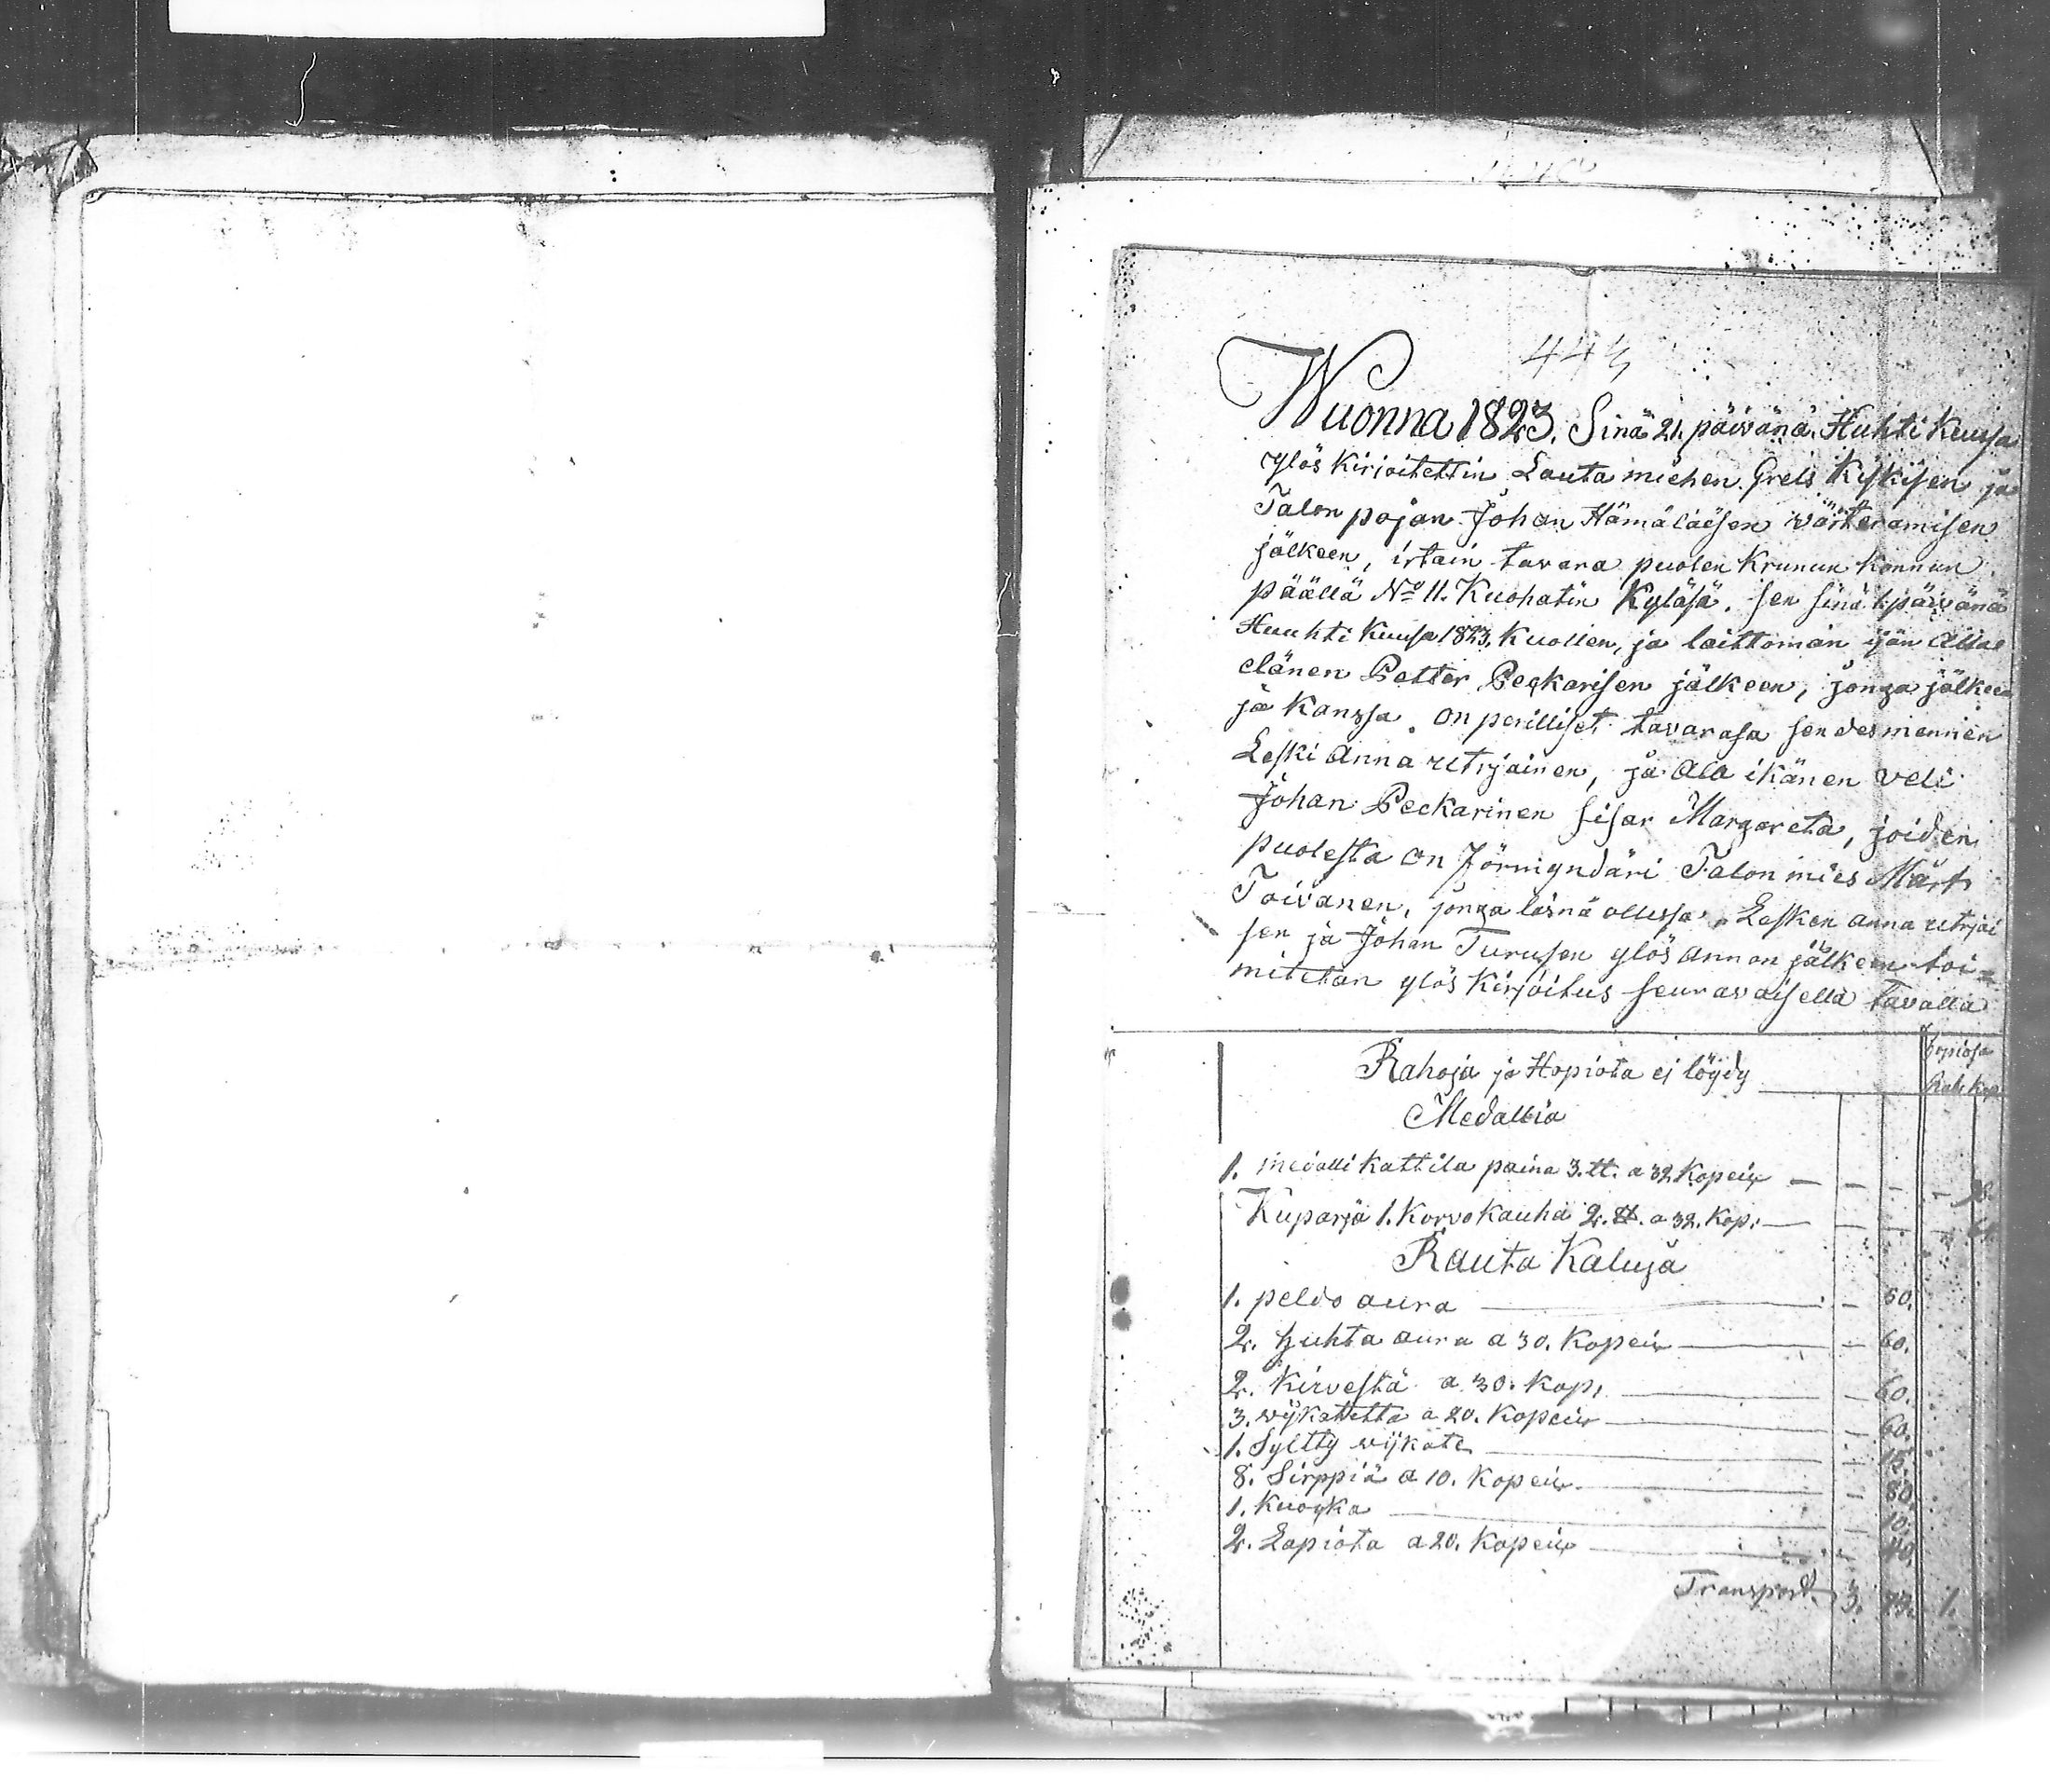 Wuonna 1823. Sinä 21. päivänä Huhti Kuussa
ylös Kirjoitettin Lauta miehen Grels Kiskisen ja
Talon pojan Johan Hämäläisen värteramisen
jälkeen, irtain tavara puolen Krunun Konnun
päällä No 11. Kuohatin Kyläsä, sen sinä 1. päivänä
Huuhti Kuusa 1823. Kuollen, ja laittoman ijän alla
elänen Petter Peckarisen jälkeen, jonga jälkeen
ja Kanssa on perilliset tavarasa sen edesmennen
Leski Anna retrjainen, ja ala ikänen veli
Johan Peckarinen sisar Margareta, joiden
puolesta on Förmyndäri Talon mies Mårt
Toivanen, jonga läsnä ollessa Lesken Anna retrjai
sen ja Johan Turusen ylös annon jälkeen toi=
mitetan ylös Kirjoitus seuravaisella tavalla
Hopiasa
Rahoja ja Hopiota ej löydy
Rub. Kop.
Medallia
1. medalli Kattila paina 3. ℔. a 32 Kopeix
Kuparja 1. Korvo Kauha 2. ℔. a 32. Kop.
Rauta Kaluja
1. peldo aura 50.
2. huhta aura a 30. Kopeix 60.
2. Kirvestä a 30. Kop. 60.
3. wijkatetta a 20. Kopeix 60.
1. Syltty wijkate 15.
8. Sirppiä a 10. Kopeix 80.
1. Kuocka 10.
2. Lapiota a 20. Kopeix 40.
Transport 3. 1.